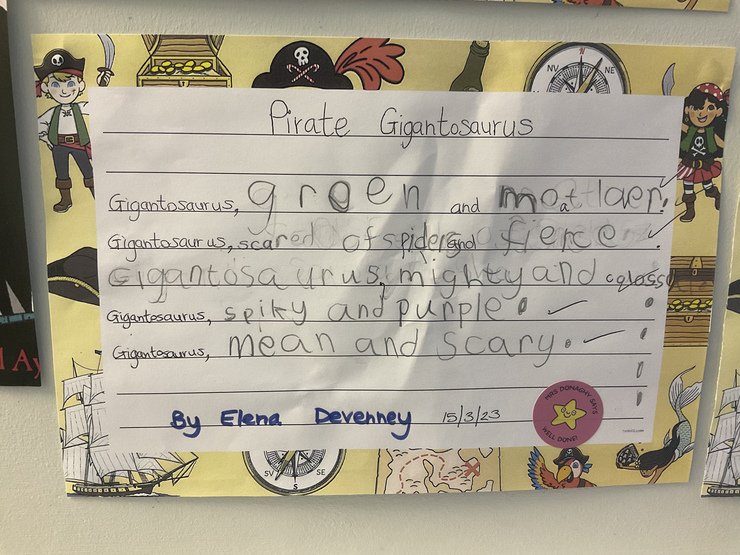 Pirate Gigantosaurus
Gigantosaurus, green and
Gigantosaurus, scared of spiders and fierce
Gigantosaurus, mighty and coloss
Gigantosaurus, spiky and purple.
Gigantosaurus, mean and scary.
By Elena Devenney 15/3/23
MRS DONAGHY SAYS
WELL DONE!
N
NE
SV
S
SE